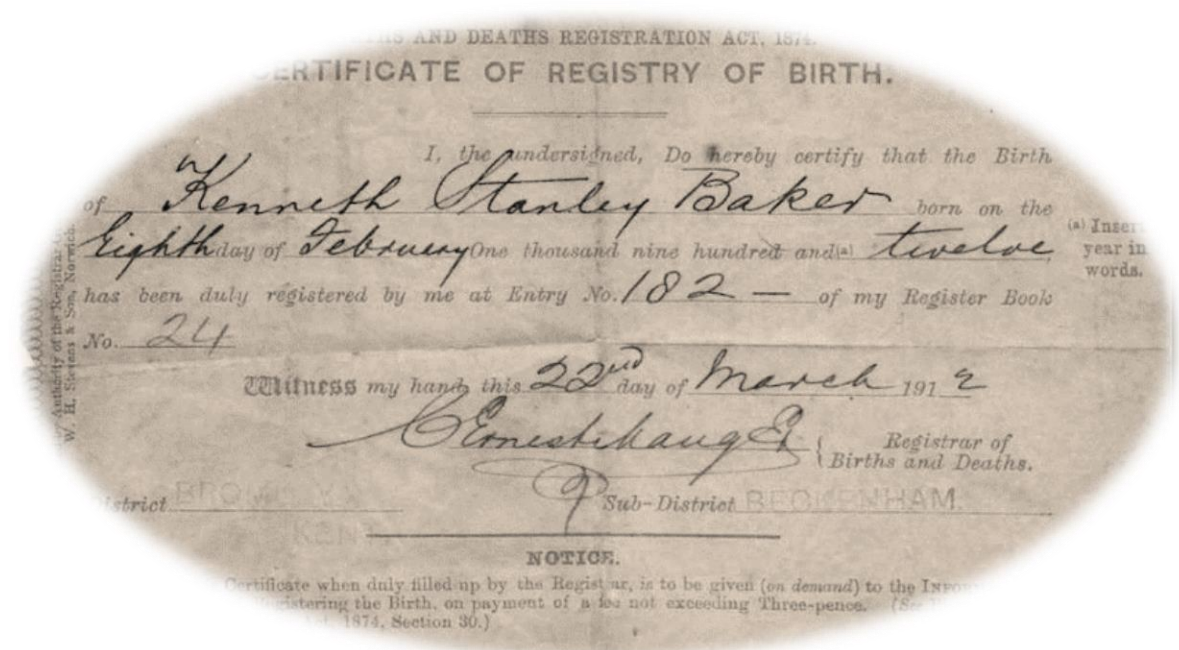 THS AND DEATHS REGISTRATION ACT, 1874.
CERTIFICATE OF REGISTRY OF BIRTH.
I, the undersigned, Do hereby certify that the Birth
of Kenneth Stanley Baker born on the
Eighth day of February One thousand nine hundred and (a) twelve
(a) Insert
year in
words.
has been duly registered by me at Entry No. 182 — of my Register Book
No. 24
Witness my hand, this 22nd day of March 1912
Registrar of
Births and Deaths.
District BROMLEY Sub-District BECKENHAM.
KENT
NOTICE.
Certificate when duly filled up by the Registrar, is to be given (on demand) to the INFOR
gistering the Birth, on payment of a fee not exceeding Three-pence. (See
1874, Section 30.)
Authority of the Registrar
W. H. Stevens & Son, Norwich.